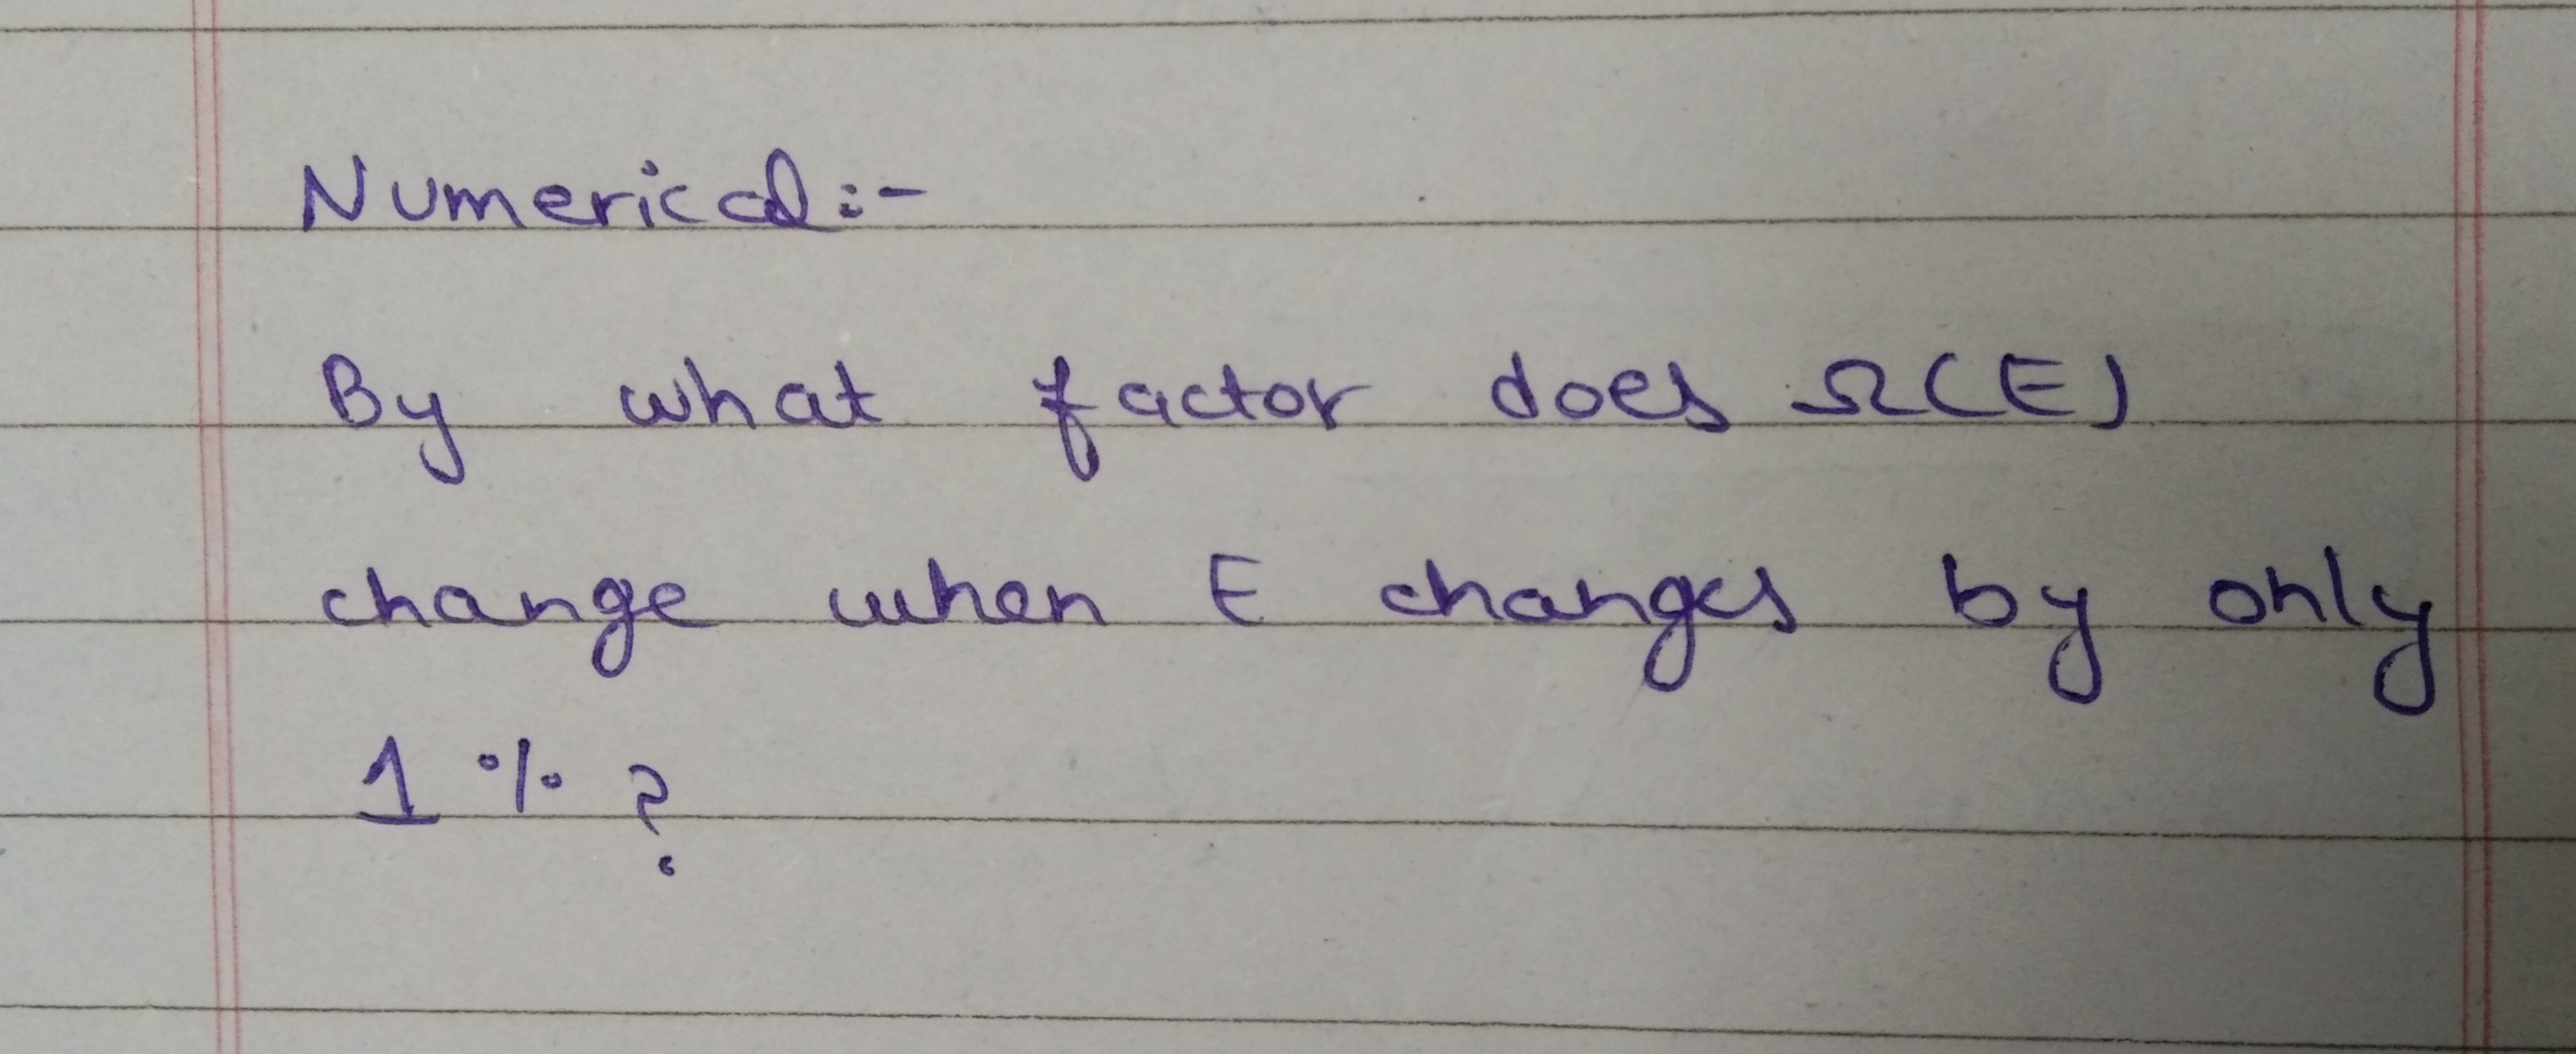 Numerical:-
By what factor does Ω(E)
change when E changes by only
1 % ?